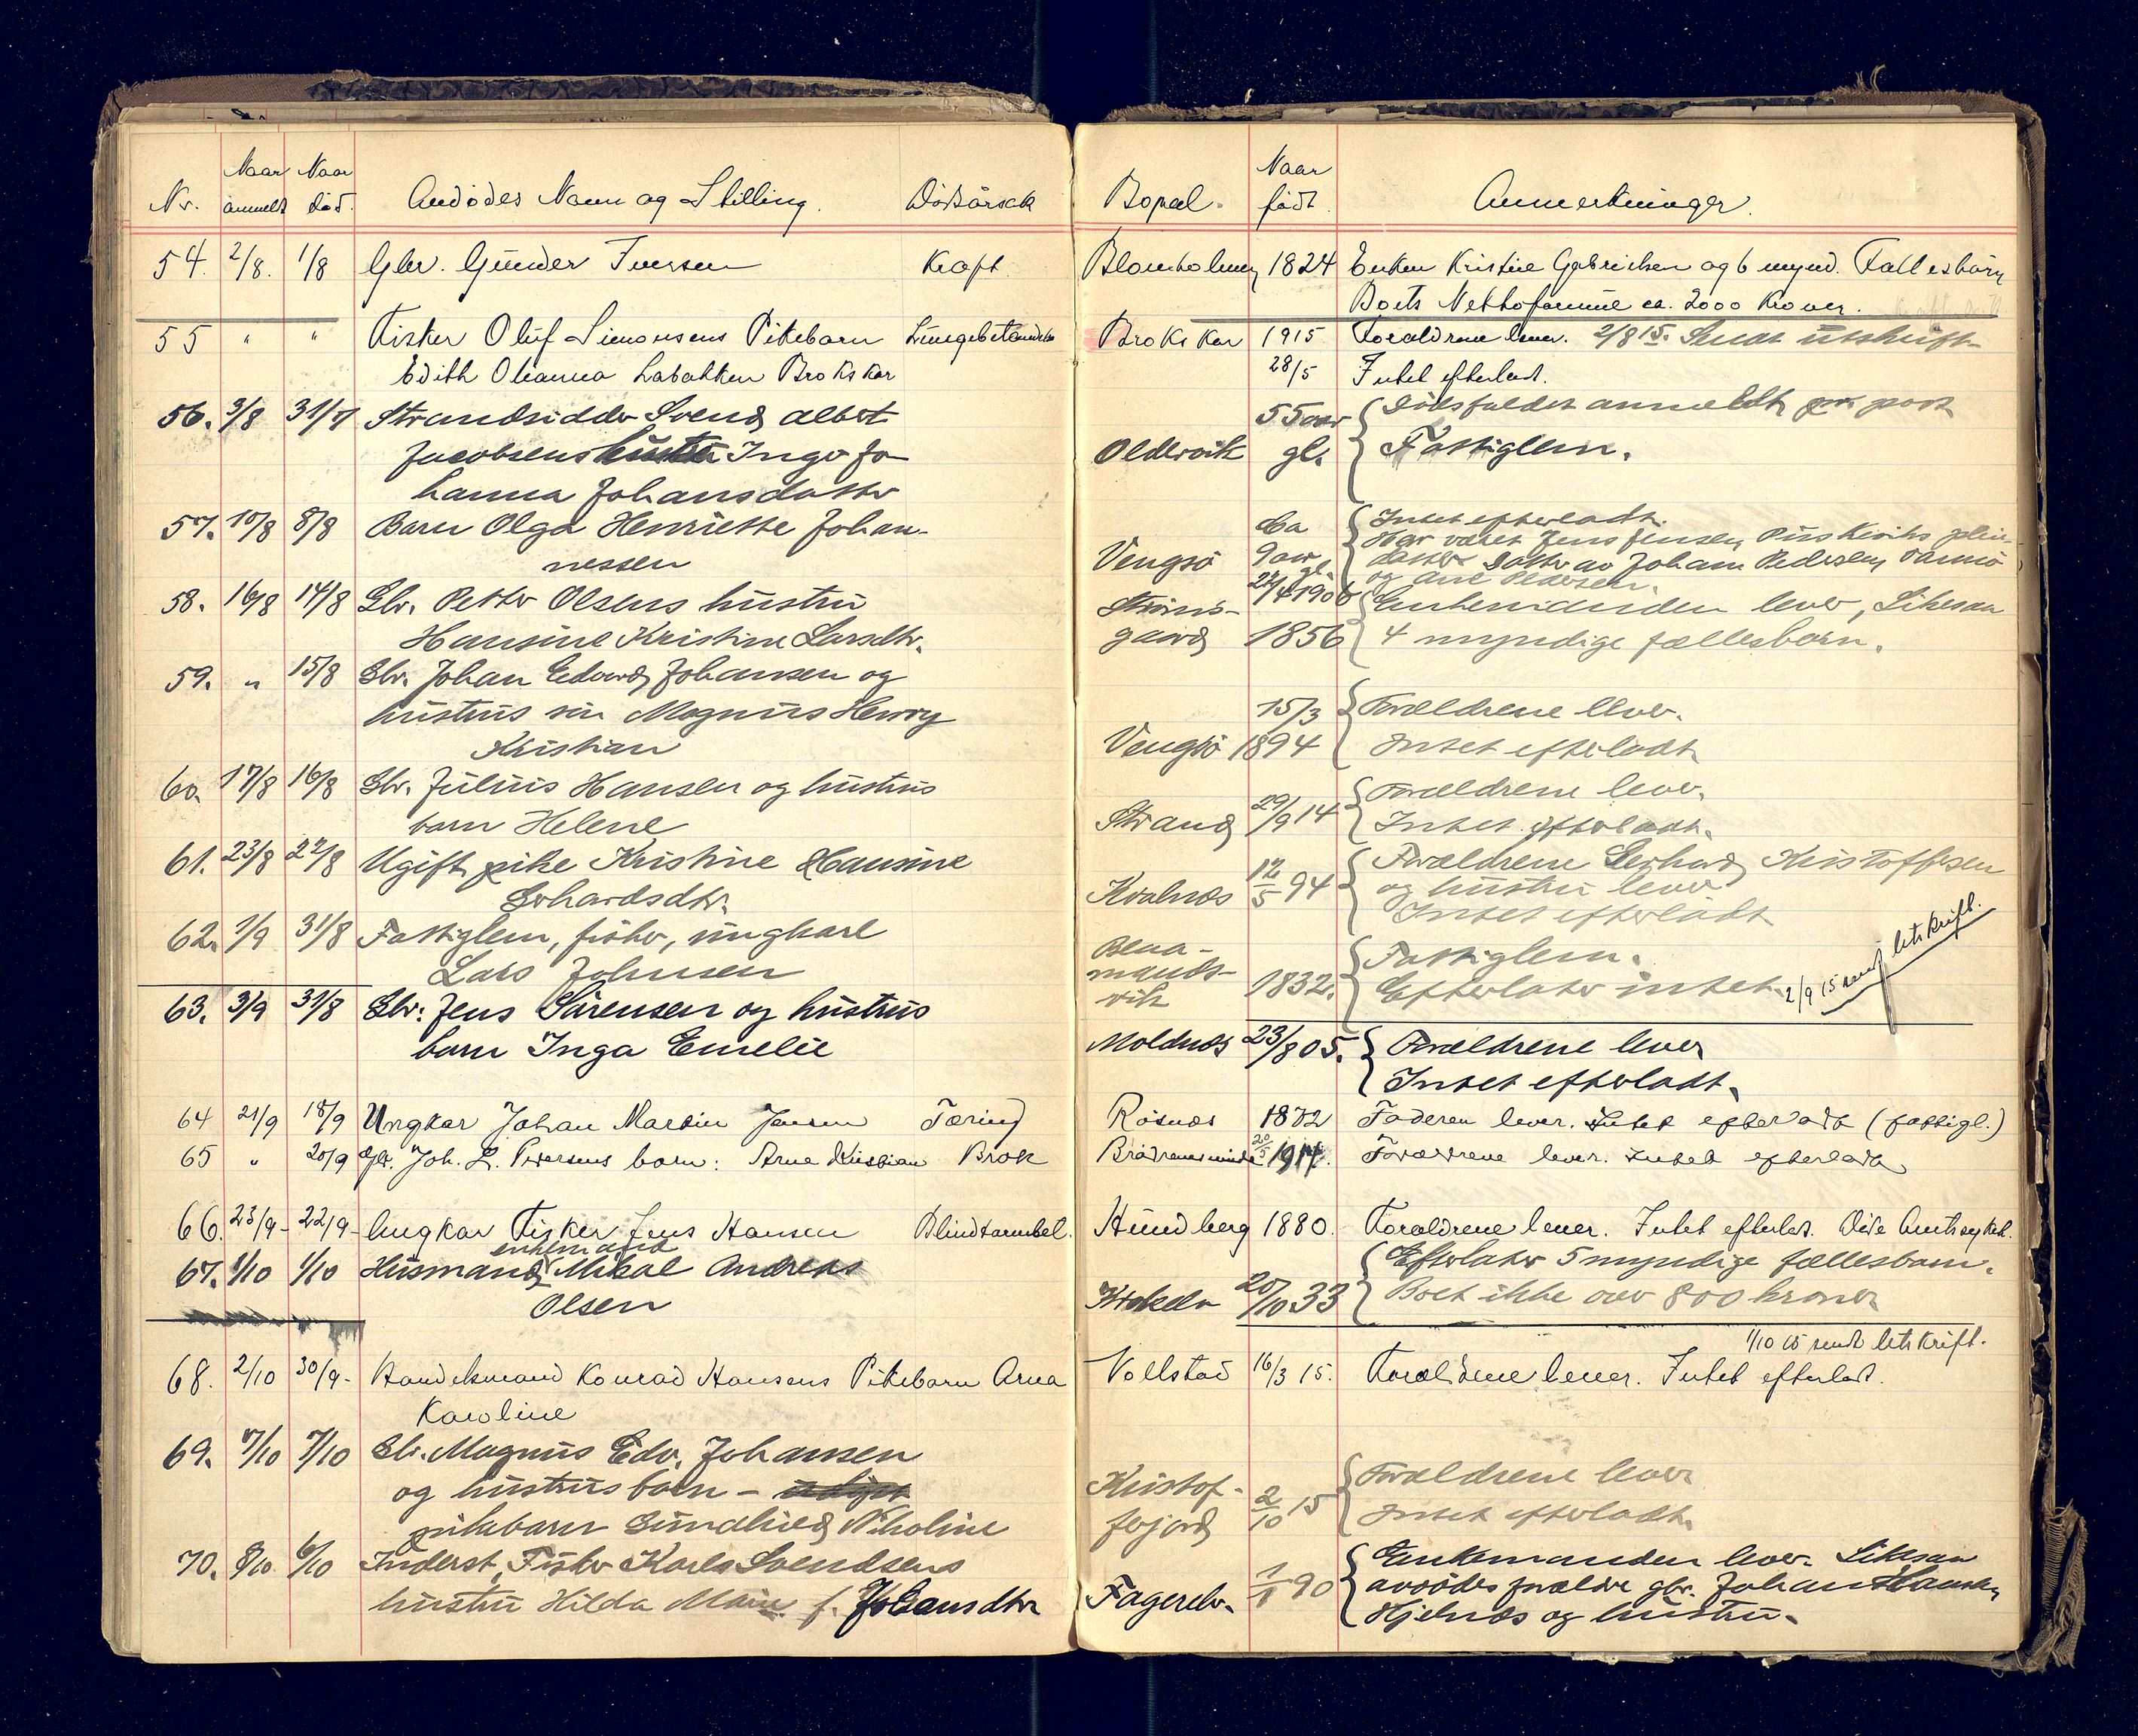 Nr. Naar anmeldt Naar død. Avdødes Navn og Stilling. Dødsårsak Bopæl. Naar født. Anmerkninger.
54. 2/8. 1/8 Gbr. Gunder Iversen Kræft Blomholmen 1824 Enken Kristine Gabrielsen og 6 mynd. Fællesbørn
Boets Nettoformue ca. 2000 Kroner.
55 " " Fisker Oluf Simonsens Pikebarn Lungebetændelse Brokskar 1915 Forældrene lever. 2/8 15. Sendt utskrift
Edith Ohanna Brokskar 28/5 Intet efterladt.
56. 3/8 31/7 Strandsidder Svend Albet 55 aar Dødsfaldet anmeldt pr. post
Jacobsens hustru Inger Jo- Oldervik gl. Fattiglem.
hanna Johansdatter
57. 10/8 8/8 Barn Olga Henriette Johan- Ca Intet efterladt.
nessen Vengsö 9 aar gl. Har været Jens Jensen plei-
datter Datter av Johan Pedersen
24/4 1906 og Pedersen.
58. 16/8 14/8 Gbr. Petter Olsens hustru Ströms- Enkemanden lever, Likesaa
Hansine Kristine Larsdtr. gaard 1856 4 myndige fællesbarn.
59. " 15/8 Gbr. Johan Edvard Johansen og
hustrus sön Magnus Henry 15/3 Forældrene lever.
Kristian Vengsö 1894 Intet efterladt
60. 17/8 16/8 Gbr. Julius Hansen og hustrus Forældrene lever.
barn Helene Strand 29/9 14 Intet efterladt.
61. 23/8 22/8 Ugift pike Kristine Hansine Forældrene Gerhard Kristoffersen
Gerhardsdtr. Kvalnæs 12/5 94 og hustru lever
Intet efterladt
62. 1/9 31/8 Fattiglem, fisker, ungkarl Fattiglem.
Lars Johnsen 1832. Efterlater intet. 2/9 15 sendt utskrift.
63. 3/9 31/8 Gbr. Jens Sörensen og hustrus Moldnæs 23/8 05. Forældrene lever
barn Inga Emelie Intet efterladt.
64 21/9 18/9 Ungkar Johan Martin Jensen Tæring Rösnæs 1872 Faderen lever. Intet efterladt (fattigl.)
65 " 20/9 Gbr. Joh. L. Pedersens barn: Arne Kristian Brok Brödrenesminde 20/5 1914. Forældrene lever. Intet efterladt
66. 23/9- 22/9- Ungkar Fisker Jens Hansen Blindtarmbet. Hundberg 1880. Forældrene lever. Intet efterladt. Døde Amtssykeh.
67. 1/10 1/10 Husmand enkemand Mikal Andreas Efterlater 5 myndige fællesbarn.
Olsen Krokelv 20/10 33 Boet ikke over 800 kroner
1/10 15 sendt utskrift.
68. 2/10 30/9- Handelsmand Konrad Hansens Pikebarn Arna Vollstad 16/3 15. Forældrene lever. Intet efterladt.
Karoline
69. 7/10 7/10 Gbr. Magnus Edv. Johansen Kristof- Forældrene lever
og hustrus barn - ferjord 2/10 15 Intet efterladt.
pikebarn Gundhild Nikoline
70. 8/10 6/10 Inderst, Fisker Karls Svendsens Enkemanden lever. Likesaa
hustru Hilda Marie f. Johansdtr Fagerelv. 1/1 90 avdödes forældre gbr. Johan Hansen,
Hjelnæs og hustru.